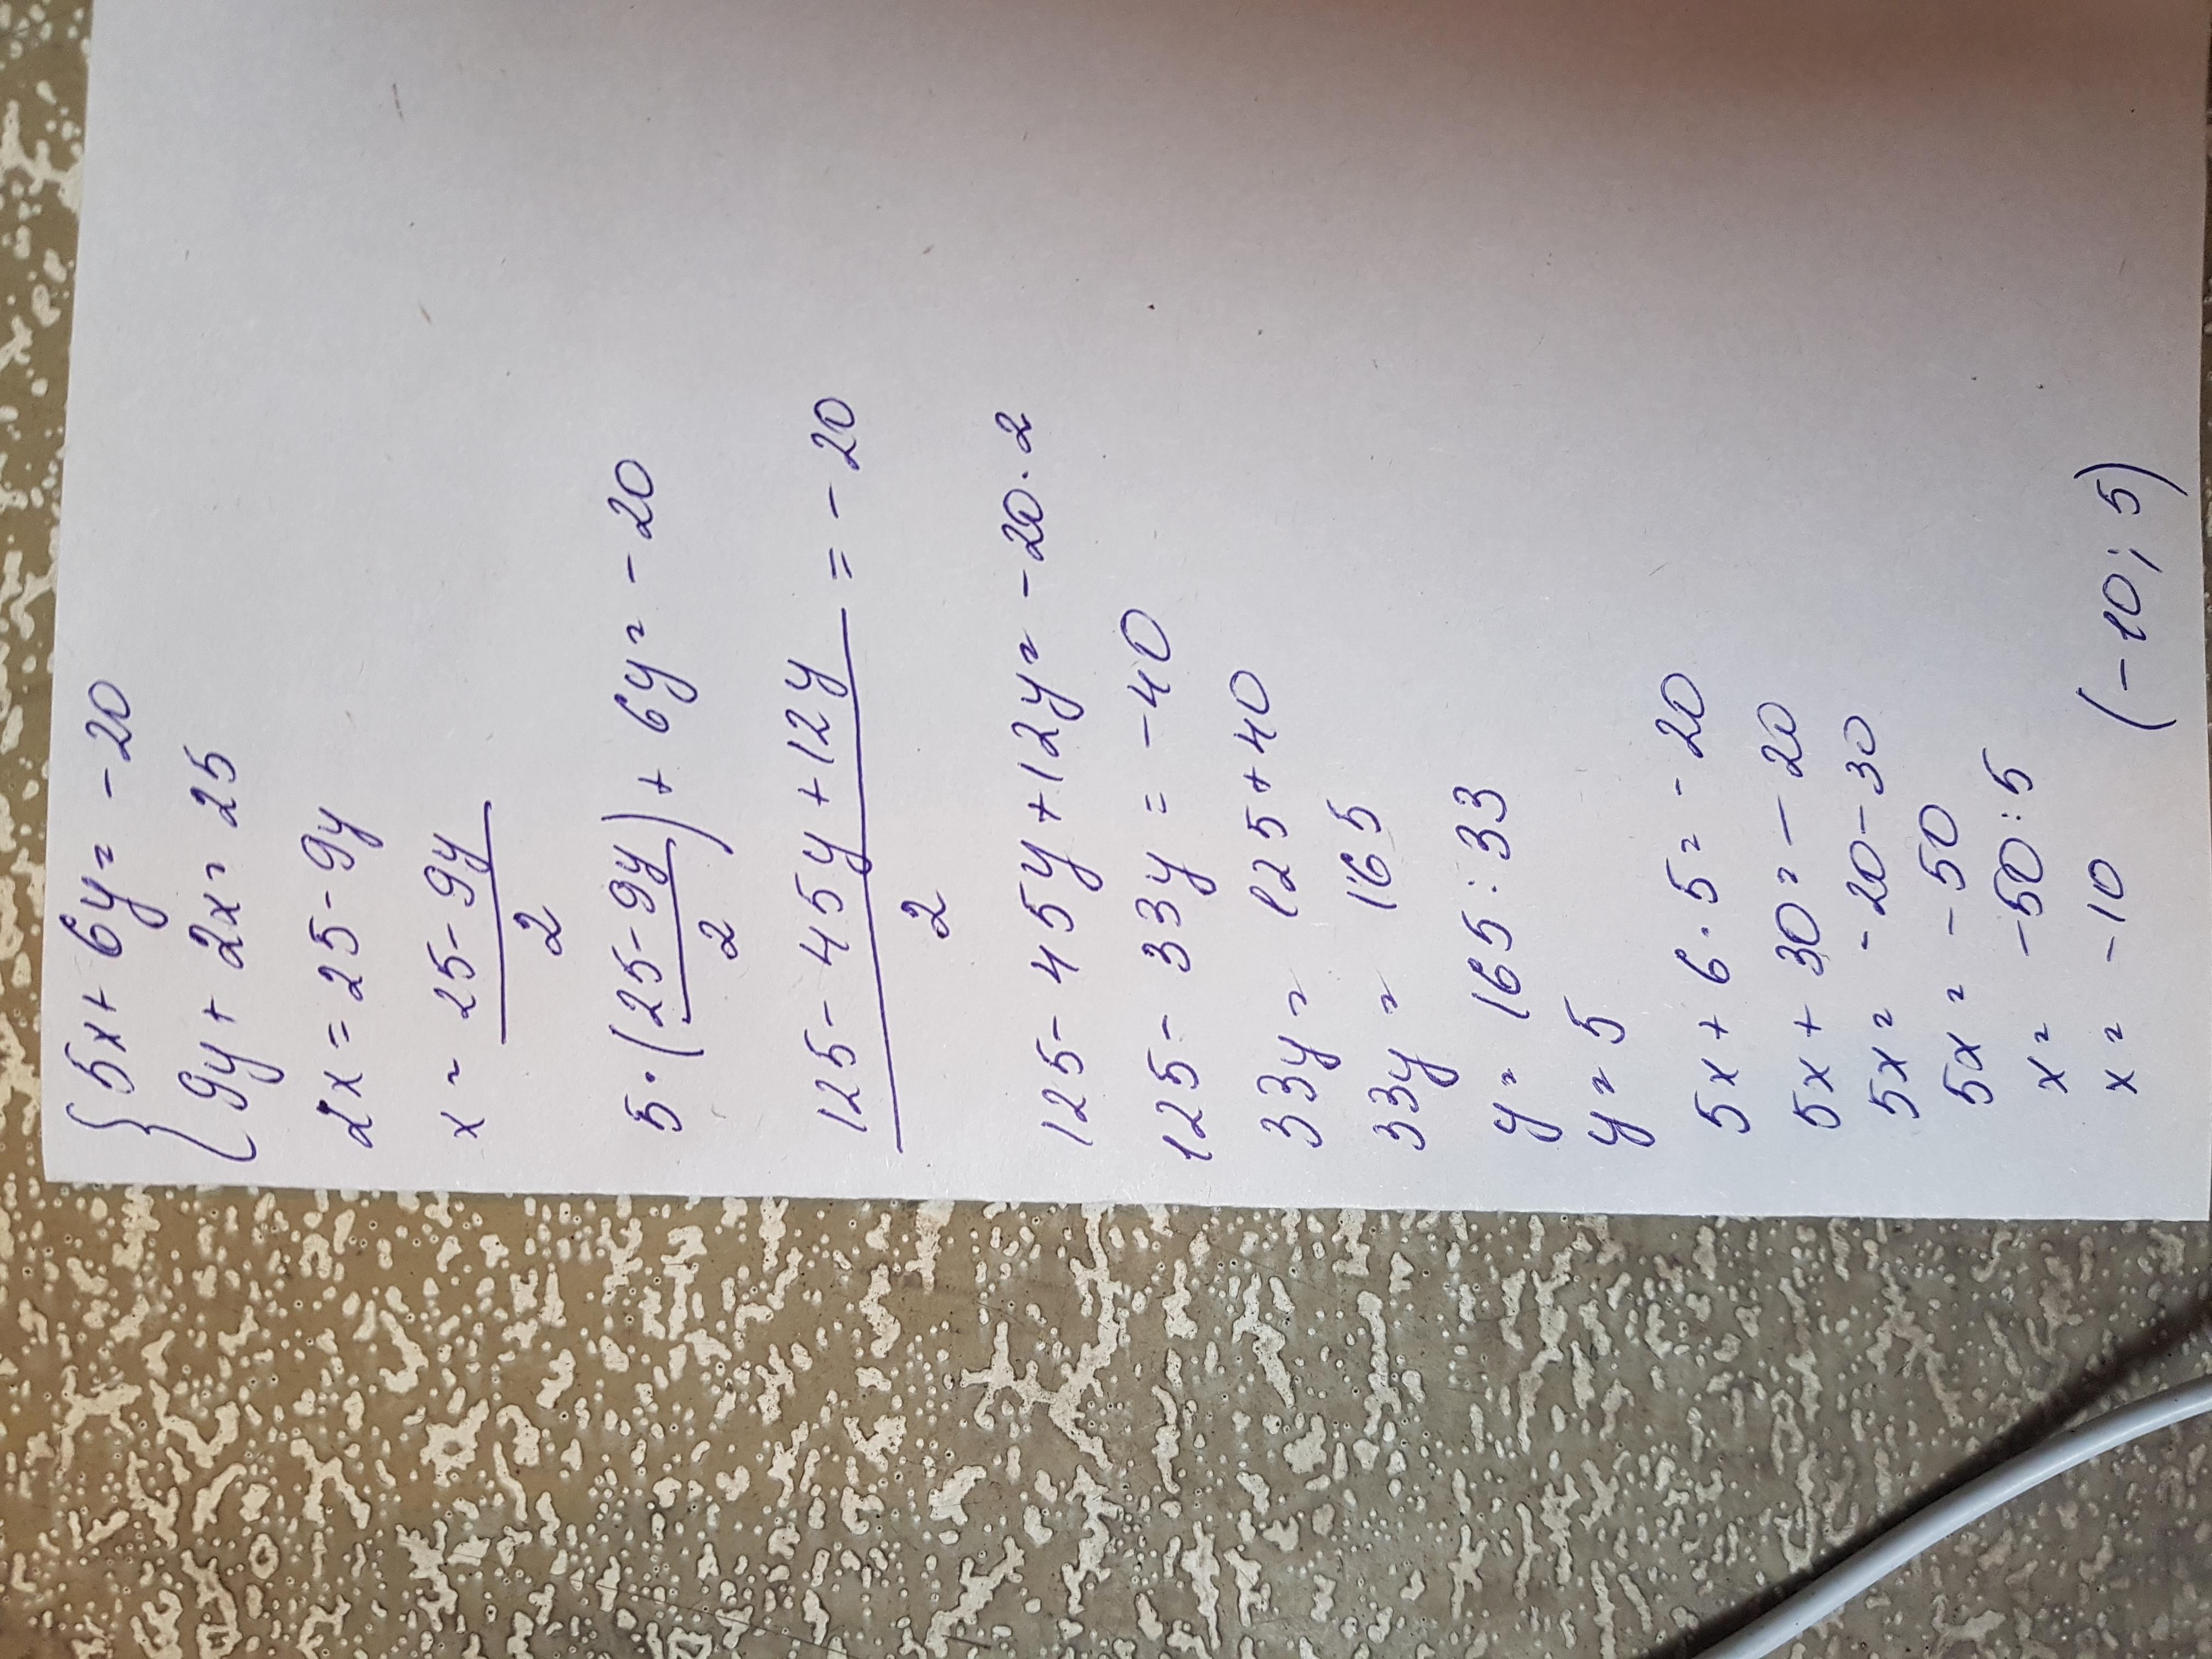 {5x + 6y = -20
9y + 2x = 25
2x = 25 - 9y
x = 25 - 9y / 2
5 · (25 - 9y / 2) + 6y = -20
125 - 45y + 12y / 2 = -20
125 - 45y + 12y = -20 · 2
125 - 33y = -40
33y = 125 + 40
33y = 165
y = 165 : 33
y = 5
5x + 6 · 5 = -20
5x + 30 = -20
5x = -20 - 30
5x = -50
x = -50 : 5
x = -10 (-10; 5)